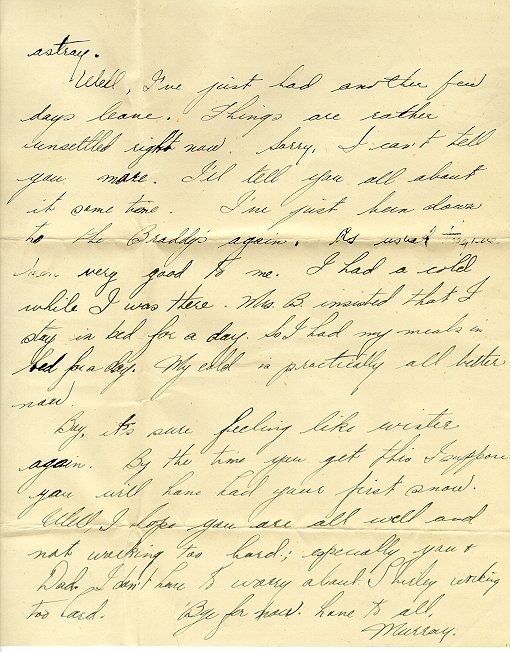 astray.
Well, I've just had another few
days leave. Things are rather
unsettled right now. Sorry, I can't tell
you more. I'll tell you all about
it some time. I've just been down
to the Braddy's again. As usual they've
been very good to me. I had a cold
while I was there. Mrs. B. insisted that I
stay in bed for a day. So I had my meals in
bed for a day. My cold is practically all better
now.
Boy, it's sure feeling like winter
again. By the time you get this I suppose
you will have had your first snow.
Well, I hope you are all well and
not working too hard; especially you &
Dad. I don't have to worry about Shirley working
too hard. Bye for now. Love to all,
Murray.